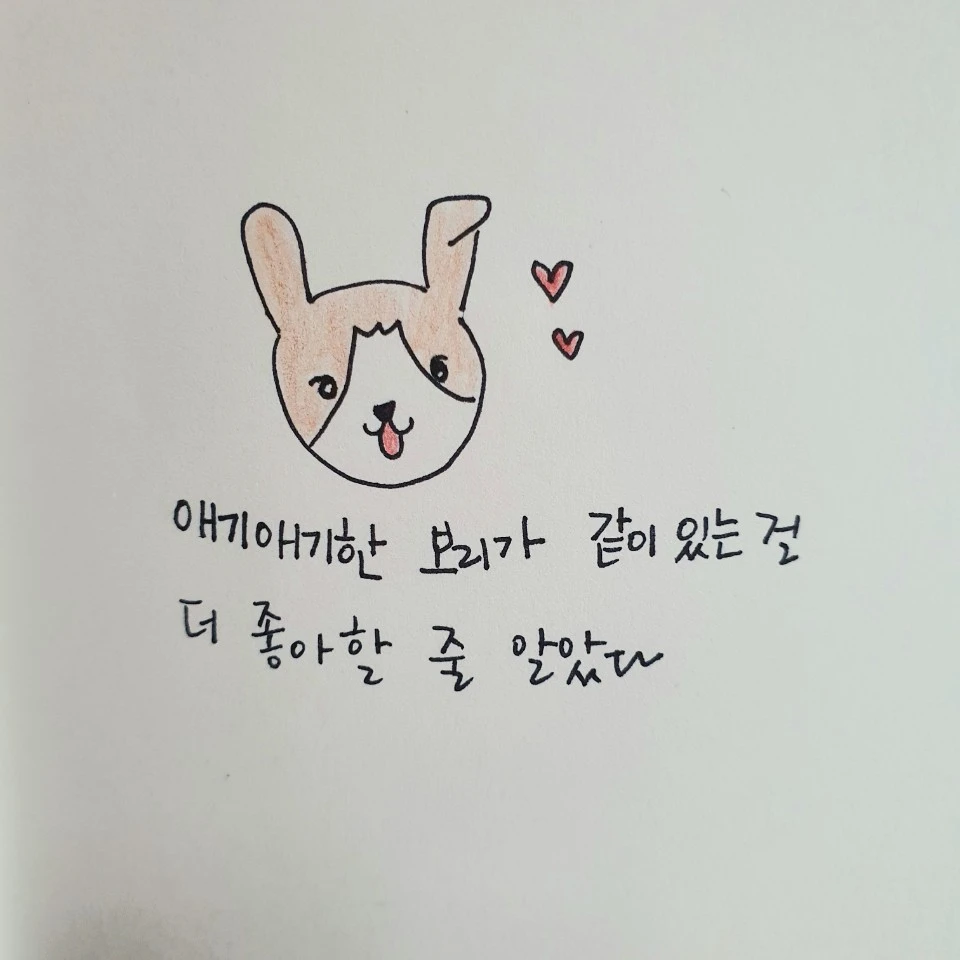 애기애기한 보리가 같이 있는 걸
더 좋아할 줄 알았다